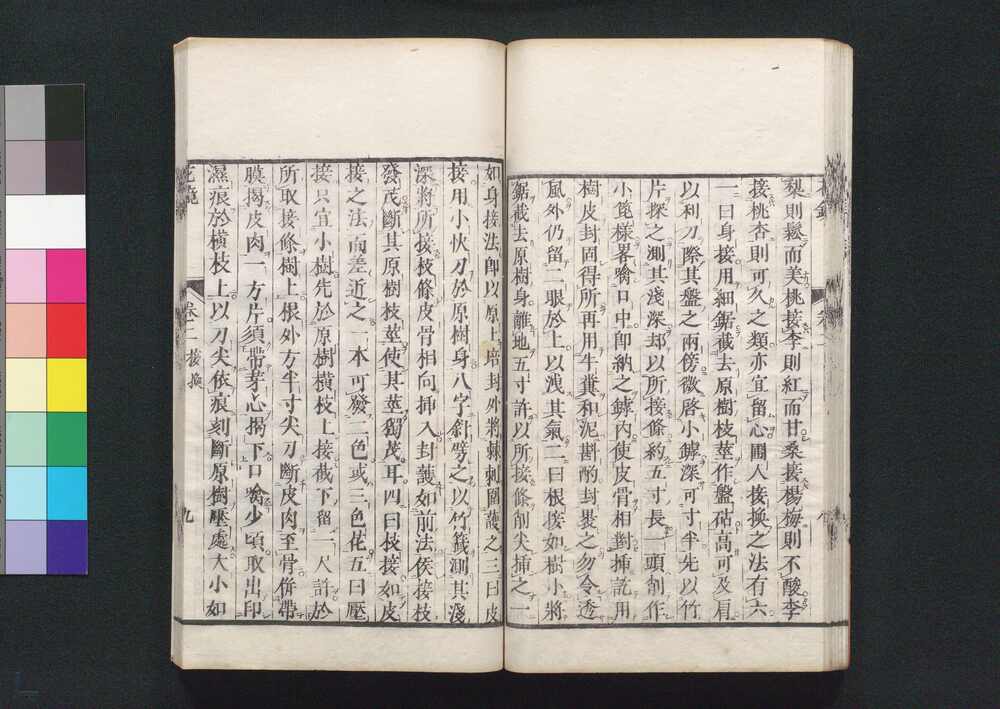 梨則鬆而美桃接李則紅而甘桑接楊梅則不酸李
接桃杏則可久之類亦宜留心圃人接換之法有六
一曰身接用細鋸截去原樹枝莖作盤砧高可及肩
以利刀際其盤之兩傍微啓小罅深可寸半先以竹
片探之測其淺深却以所接條約五寸長一頭削作
小箆樣畧噙口中即納之罅內使皮骨相對插訖用
樹皮封固得所再用牛糞和泥斟酌封畏之勿令透
風外仍留二眼於上以洩其氣二曰根接如樹小將
鋸截去原樹身離地五寸許以所接條削尖插之一
如身接法即以原土培封外將棘刺圍護之三曰皮
接用小快刀於原樹身八字斜劈之以竹籤測其淺
深將所接枝條皮骨相向插入封護如前法俟接枝
發茂斷其原樹枝莖使其莖獨茂耳四曰枝接如皮
接之法而差近之一木可發二色或三色花五曰壓
接只宜小樹先於原樹橫枝上接截下留一尺許於
所取接條樹上根外方半寸尖刀斷皮肉至骨倂帶
膜揭皮肉一方片須帶芽心揭下口噙少頃取出印
濕痕於橫枝上以刀尖依痕刻斷原樹壓處大小如
花鏡
卷二 接換
九